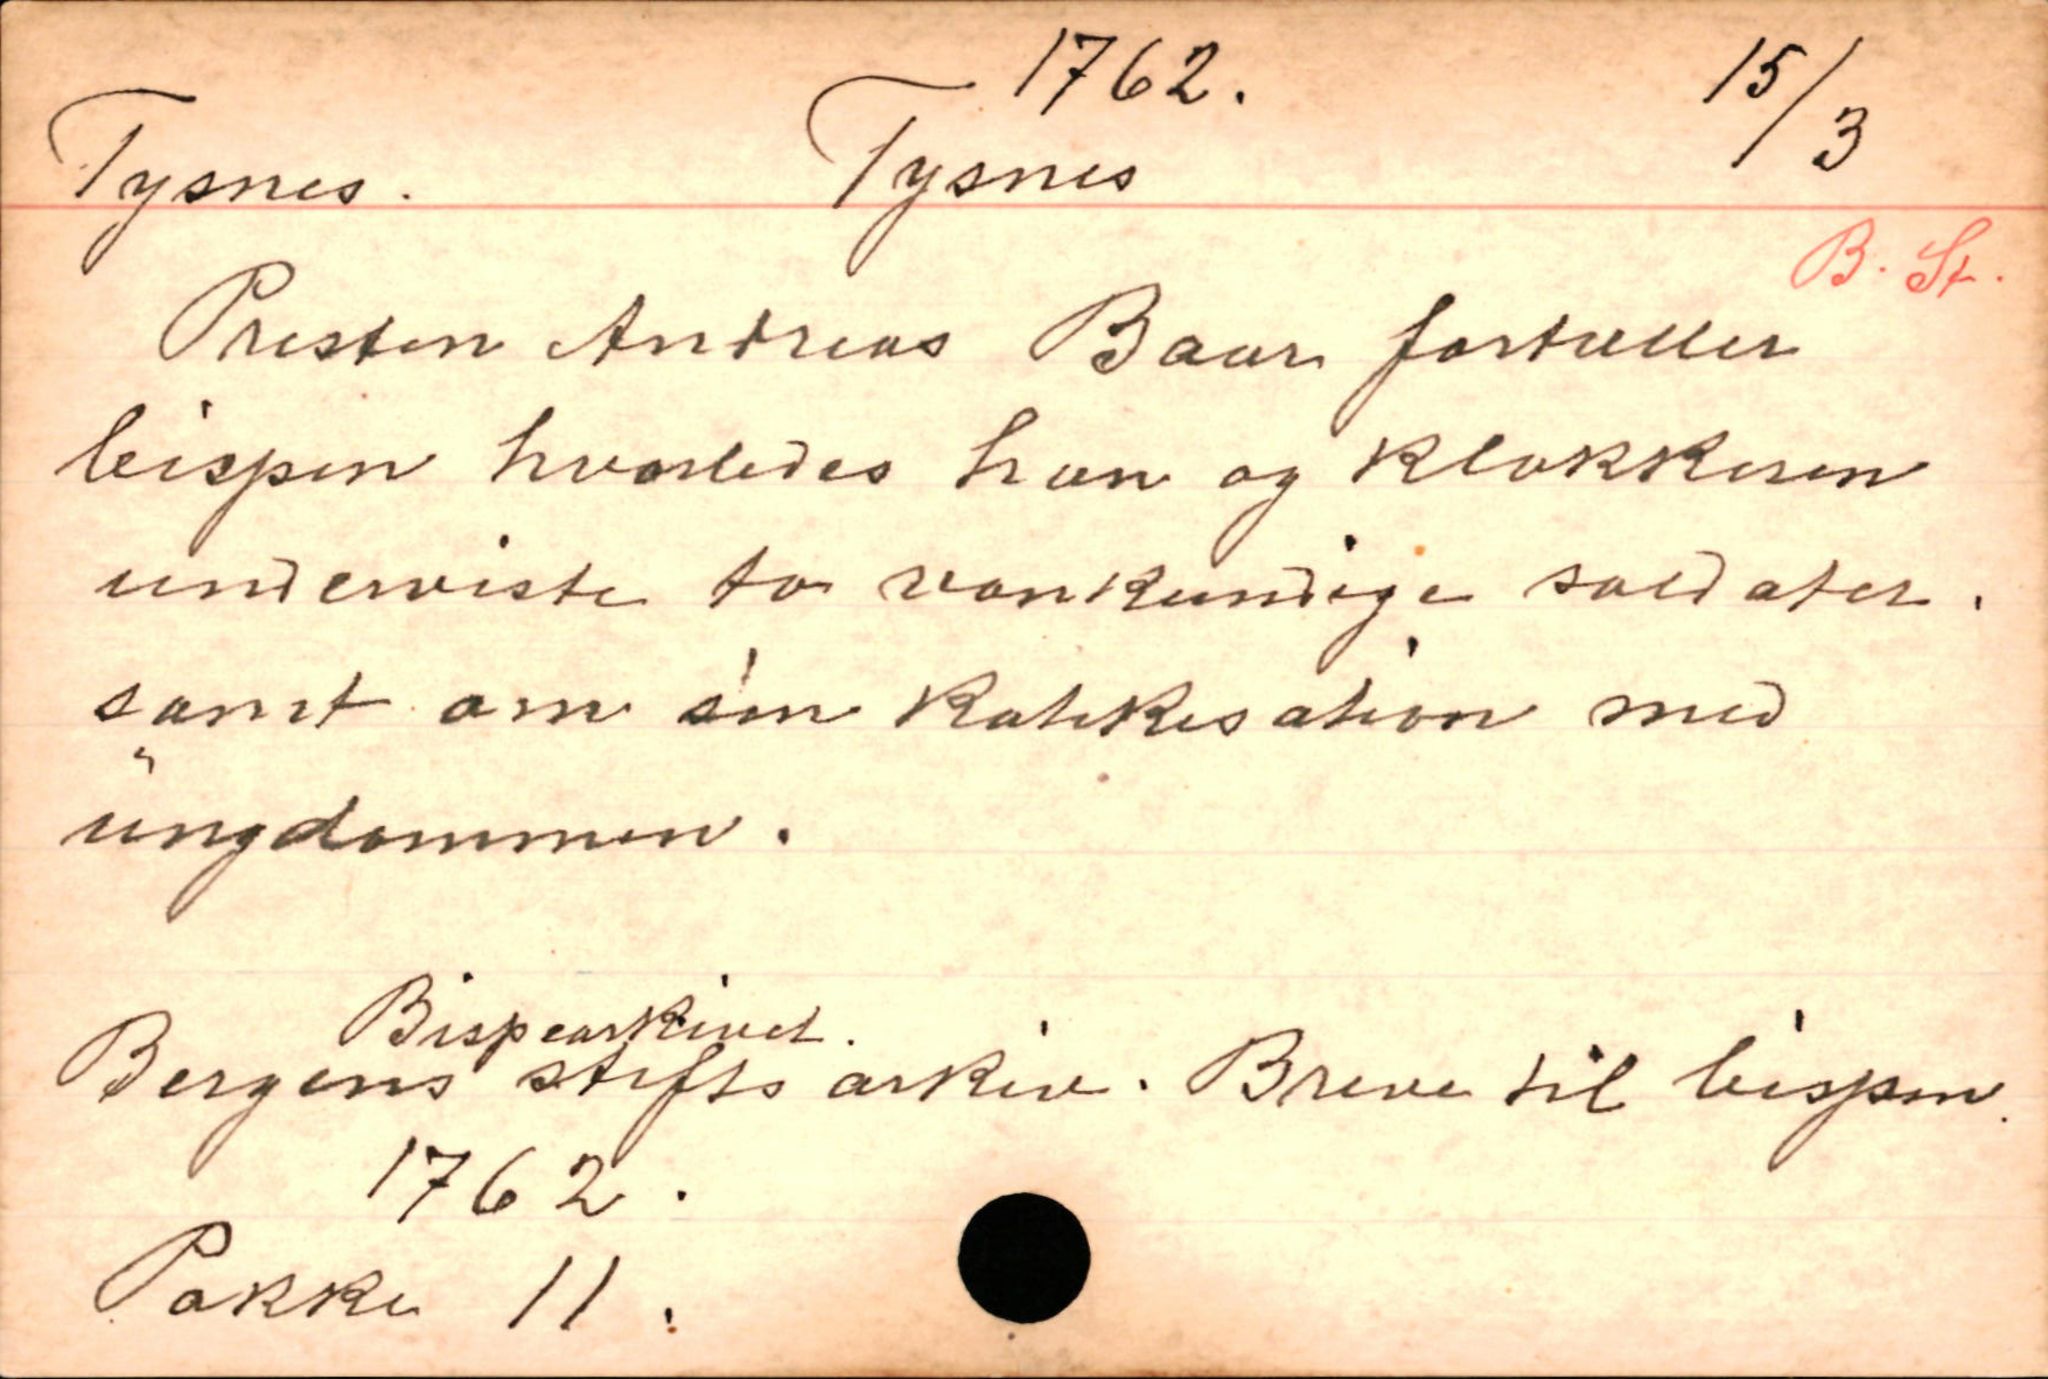 1762. 15/3
Tysnes. Tysnes
B. St.
Presten Andreas Baar fortæller
bispen hvorledes han og klokkeren
underviste to vankundige soldater.
samt om sin katekesation med
ungdommen.
Bispearkivet.
Bergens stiftsarkiv. Breve til bispen.
1762.
Pakke 11.